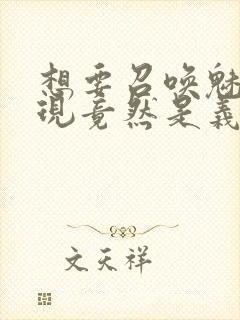 想要召唤魅
现竟然是義
文天祥